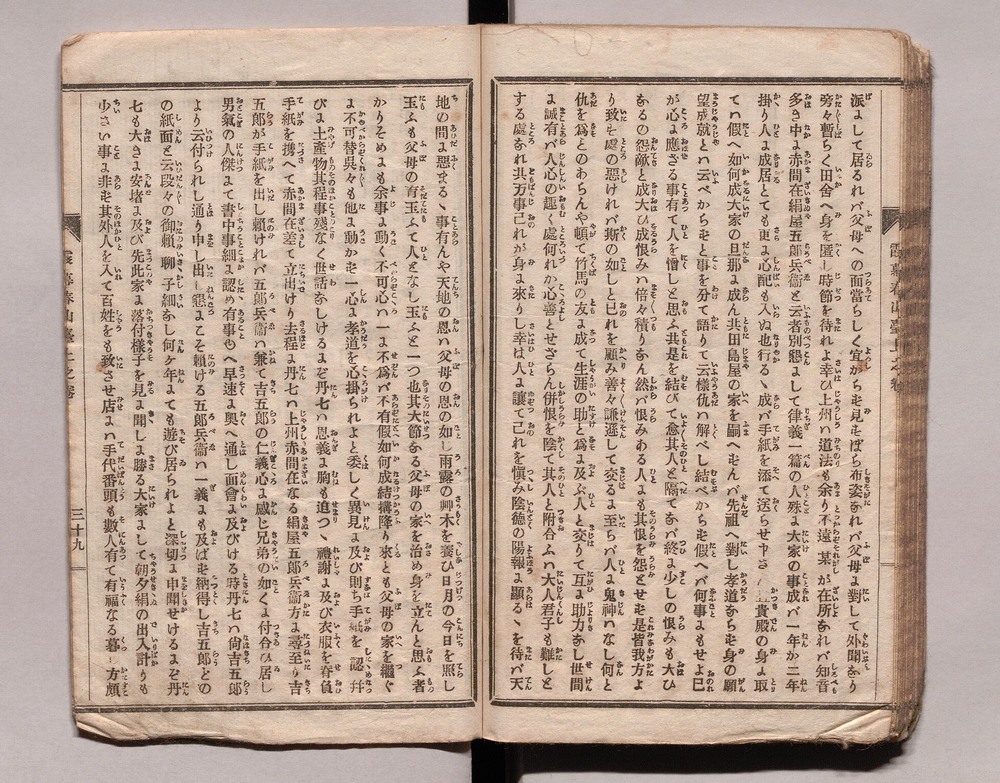 派よして居るれバ父母への面當らしく宜からも見そぼら布姿なれバ父母ょ對して外聞なり
旁々暫らく田舍へ身を匿し時節を待れよ幸ひ上州の道法も余り不遠某が在所なれバ知音
多き中ょ赤間在絹屋五郎兵衞と云者別懇ょして律義一篇の人殊ょ大家の事成バ一年か二年
掛り人ょ成居とても更よ心配も入ぬ也行るゝ成バ手紙を添て送らせ申さん貴殿の身ょ取
てハ假へ如何成大家の旦那ょ成ん共田島屋の家を嗣へもんバ先祖へ對し孝道ならも身の願
望成就とハ云べからもと事を分て語りて云樣仇ハ解べし結べからも假へバ何事ょもせよ己
が心よ應ざる事有て人を憎しと思ふ共是を結びて愈其人と隔て夲バ終ょ少しの恨みも大ひ
なるの怨敵と成大ひ成恨みハ倍々積りなん然バ恨みある人とも其恨を怨とせも是皆我方よ
り致も處の惡けれバ斯の如しと己れを顧み善々謙遜して交るょ至らバ人ょ鬼神ハなし何と
仇を爲とのあらんや頓て竹馬の友ょ成て生涯の助とも爲ょ及ぶ人と交りて互ょ助力なし世間
ょ誠有バ人心の趣く處何れか心善とせさらん併恨を陰て其人と附合ふハ大人君子も難しと
する處なれ共万事己れが身ょ來りし幸は人ょ讓て己れを愼み陰德の陽報ょ顯るゝを待バ天
地の間ょ惡まるゝ事有んや天地の恩ハ父母の恩の如し雨露の艸木を養ひ日月の今日を照し
玉ふも父母の育玉ふて人となし玉ふと一つ也其大節なる父母の家を治め身を立んと思ふ者
かりそめょも余事ょ動く不可心ハ一ょ不爲バ不有假如何成結構降り來とも父母の家を繼ぐ
ょ不可替吳々も他ょ動かも一心ょ孝道を心掛られよと委しく異見ょ及び則ち手紙を認并
びょ土產物其程事殘なく世話なしけるょぞ丹七ハ恩義ょ胸も追つゝ禮謝ょ及び衣服を脊負
手紙を携へて赤間在差て立出けり去程ょ丹七ハ上州赤間在なる絹屋五郎兵衞方ょ尋至り吉
五郎が手紙を出し賴けれバ五郎兵衞ハ兼て吉五郎の仁義心ょ感じ兄弟の如くょ付合ひ居し
男氣の人傑ょて書中事細ょ認め有事也へ早速ょ奧へ通し面會ょ及びける時丹七ハ尙吉五郎
より云付られし通り申し出し懇ょこそ賴ける五郎兵衞ハ一義ょも及ばも納得し吉五郎との
の紙面と云段々の御賴聊子細なし何ヶ年ょても遊び居られよと深切ょ申聞せけるょぞ丹
七も大きょ安堵ょ及び先此家ょ落付樣子を見ょ聞しょ勝る大家ょして朝夕絹の出入計りも
少さい事ょ非も其外人を入て百姓をも致させ店ょハ手代番頭も數人有て有福なる暮し方頗
三十九